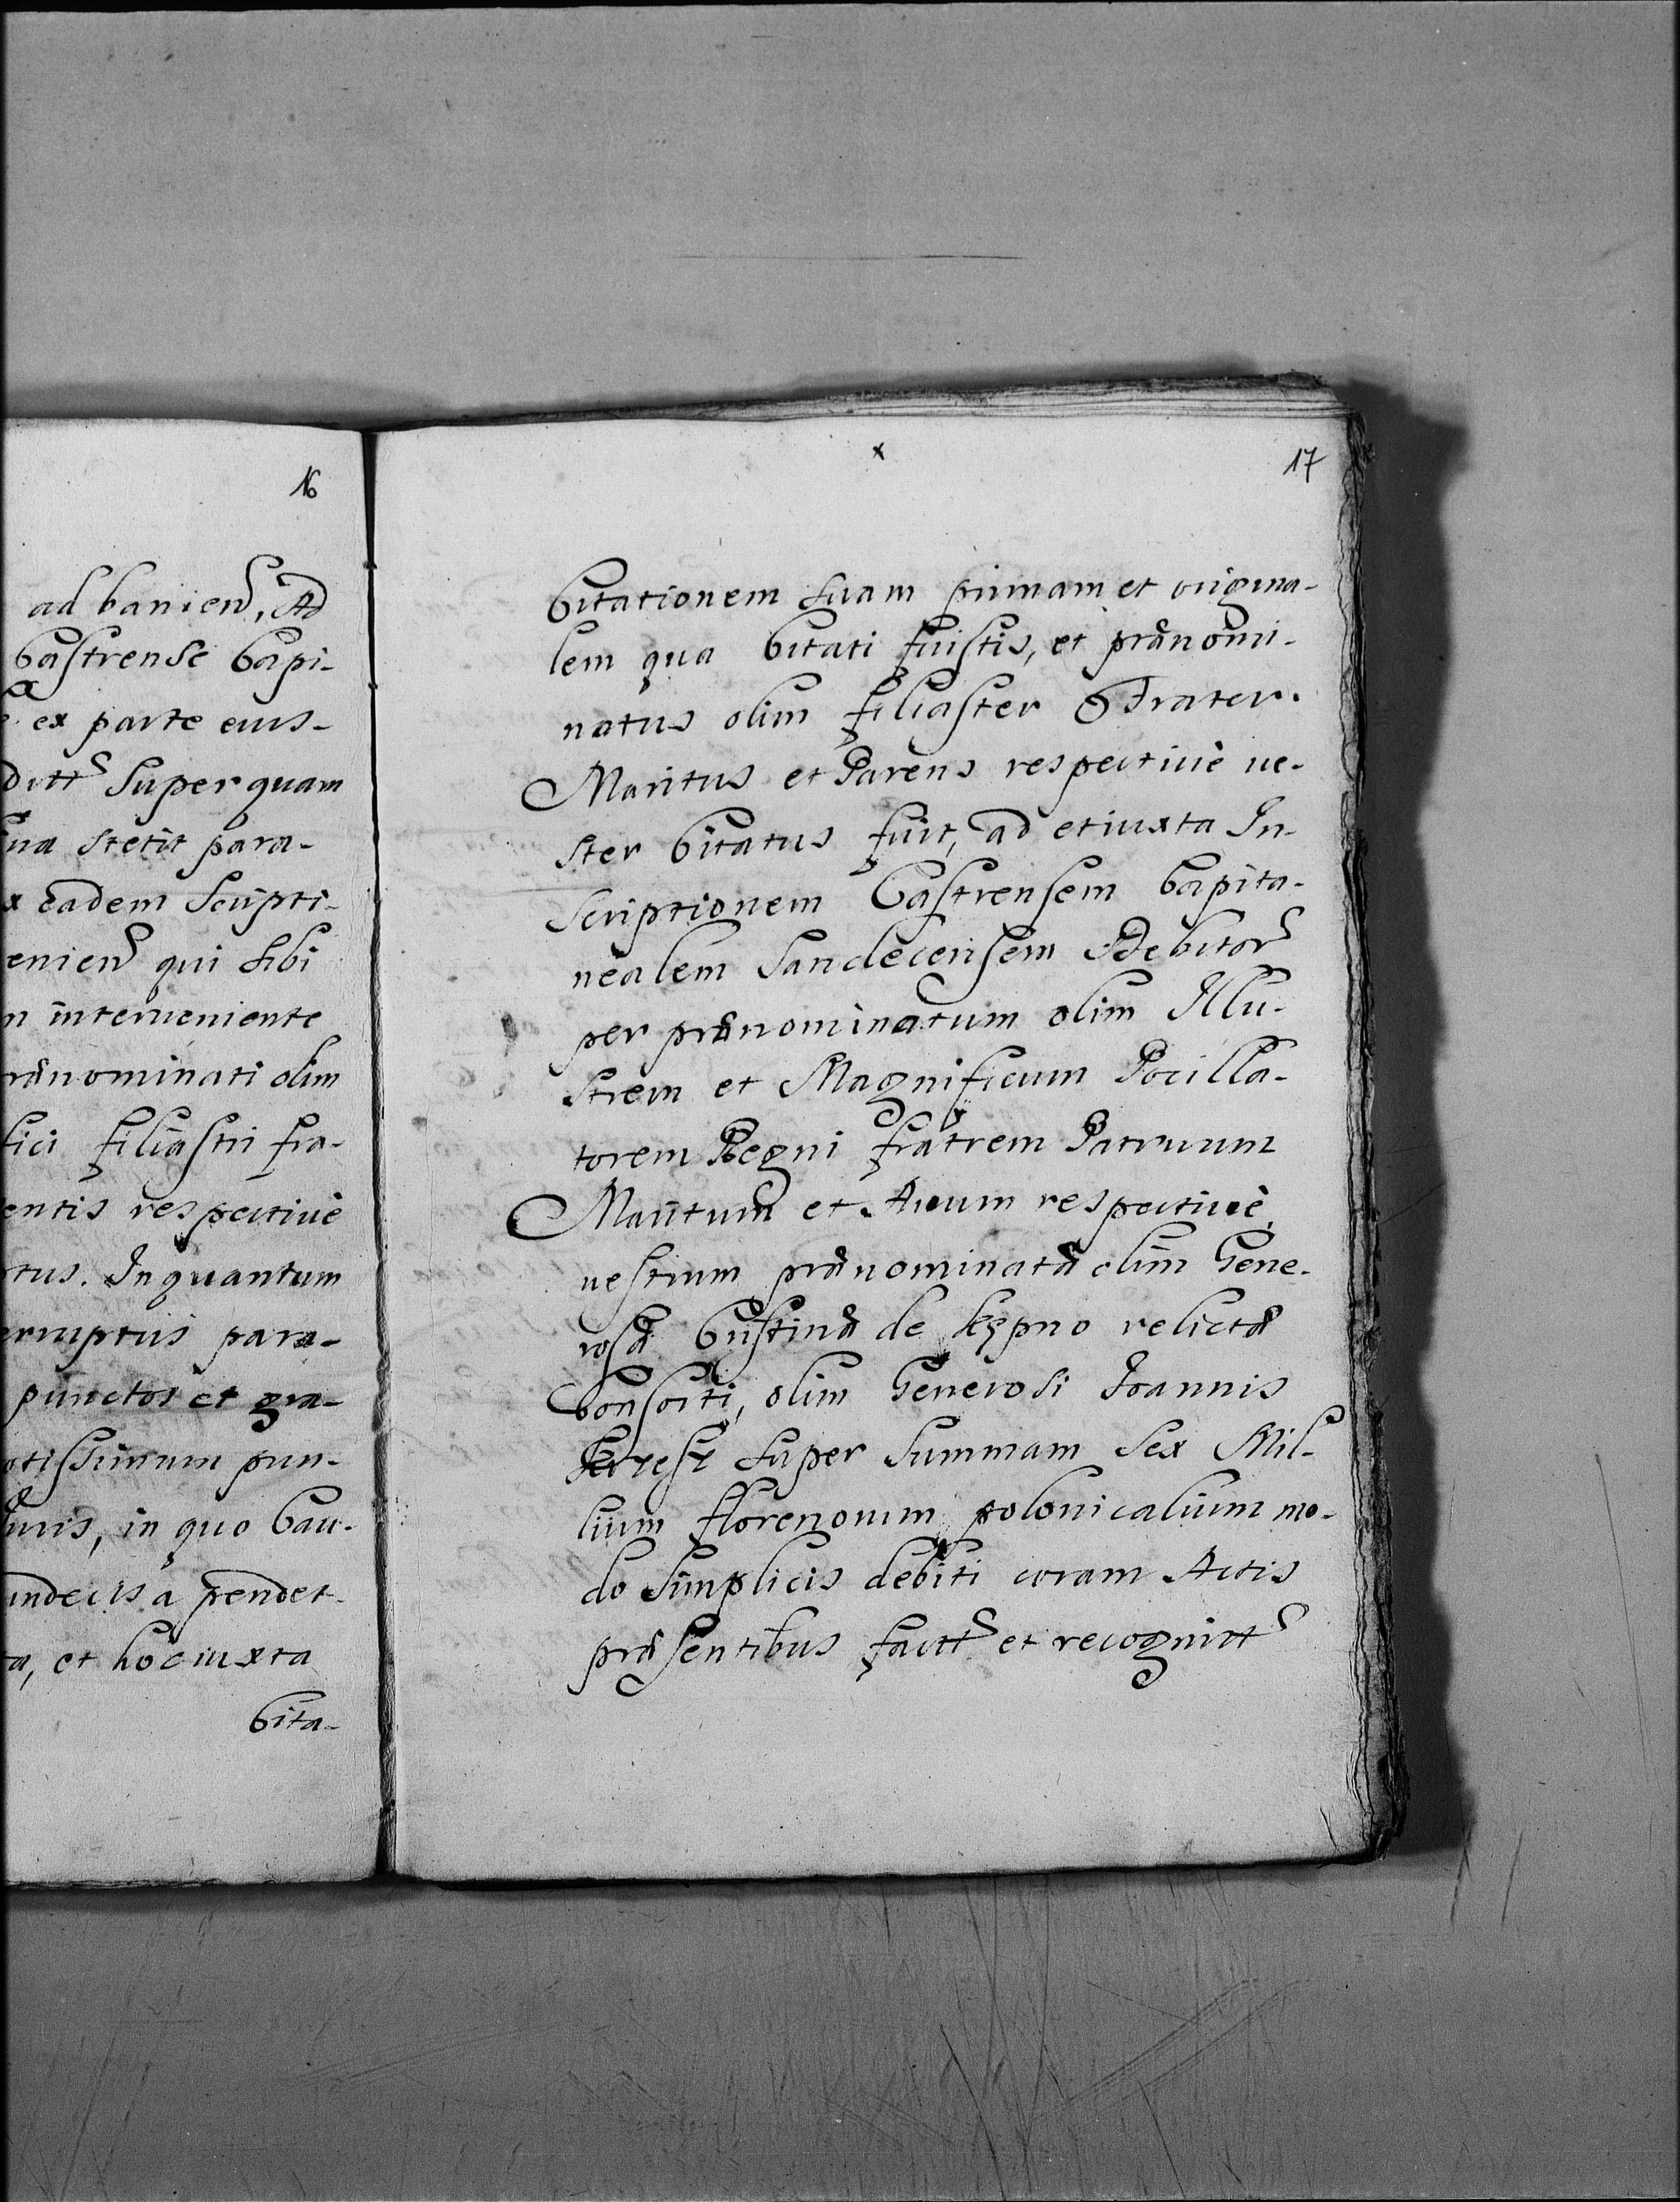 16
ad banien, Ad
Castrense Capi-
ex parte eius-
ditt Super quam
ua stetit para-
x eadem Scripti-
enien qui sibi
n interueniente
ränominati olim
fici filiastri fra-
entis respectiuè
rtus. Inquantum
erruptus para-
punctos et gra-
otissimum pun-
uris, in quo Cau-
indecisa pendet.
ta, et hoc iuxta
Cita-
x
17
Citationem suam primam et origina-
lem qua Citati fuistis, et pränomi-
natus olim filiaster Frater.
Maritus et Parens respectiuè ue-
ster Citatus fuit, ad et iuxta In-
scriptionem Castrensem Capita-
nealem Sandecensem Debitor
per pränominatum olim Illu-
strem et Magnificum Pocilla-
torem Regni fratrem Patruum
Maritum et Auum respectiuè
uestrum pränominatä olim Gene-
rosä Cristinä de Kępno relictä
Consorti, olim Generosi Joannis
super Summam Sex Mil-
lium florenorum polonicalium mo-
do simplicis debiti coram Actis
präsentibus factt et recognitt